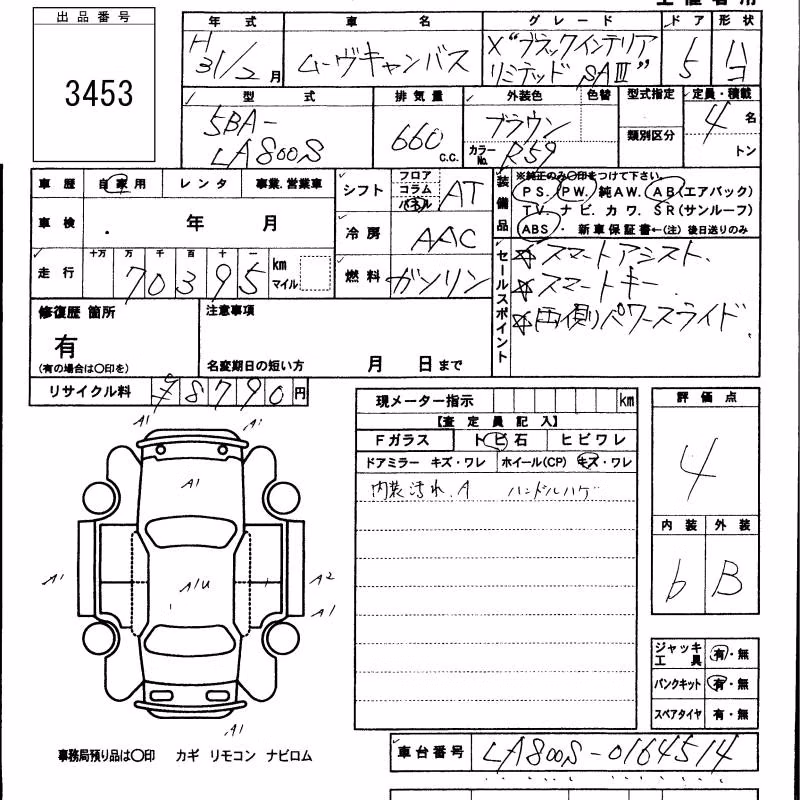 出品番号
3453
年式 車名 グレード ドア 形状
H31/2月 ムーヴキャンバス X"ブラックインテリア 5 ハコ
リミテッド SAⅢ"
型式 排気量 外装色 色替 型式指定 定員・積載
5BA- 660 c.c. ブラウン 類別区分 4名
LA800S カラーNo. R59 トン
車歴 自家用 レンタ 事業.営業車
シフト フロア コラム パネル AT
装備品 ※純正のみ〇印をつけて下さい。
PS. PW. 純AW. AB(エアバック)
TV. ナビ. カワ. SR(サンルーフ)
ABS . 新車保証書←(注)後日送りのみ
車検 年 月
冷房 AAC
走行 十万 万 千 百 十 一
70395 km マイル
燃料 ガソリン
セールスポイント
☆スマートアシスト.
☆スマートキー.
☆両側パワースライド
修復歴 箇所
有
(有の場合は〇印を)
注意事項
名変期日の短い方 月 日まで
リサイクル料 ¥8790円
現メーター指示 km
【査定員記入】
Fガラス トビ石 ヒビワレ
ドアミラー キズ・ワレ ホイール(CP) キズ・ワレ
内装汚れ.A ハンドルハゲ
評価点
4
内装 外装
b B
A1 A1
A1
A1 A1U A2
A1
A1
ジャッキ工具 有・無
パンクキット 有・無
スペアタイヤ 有・無
事務局預り品は〇印 カギ リモコン ナビロム
車台番号 LA800S-0164514